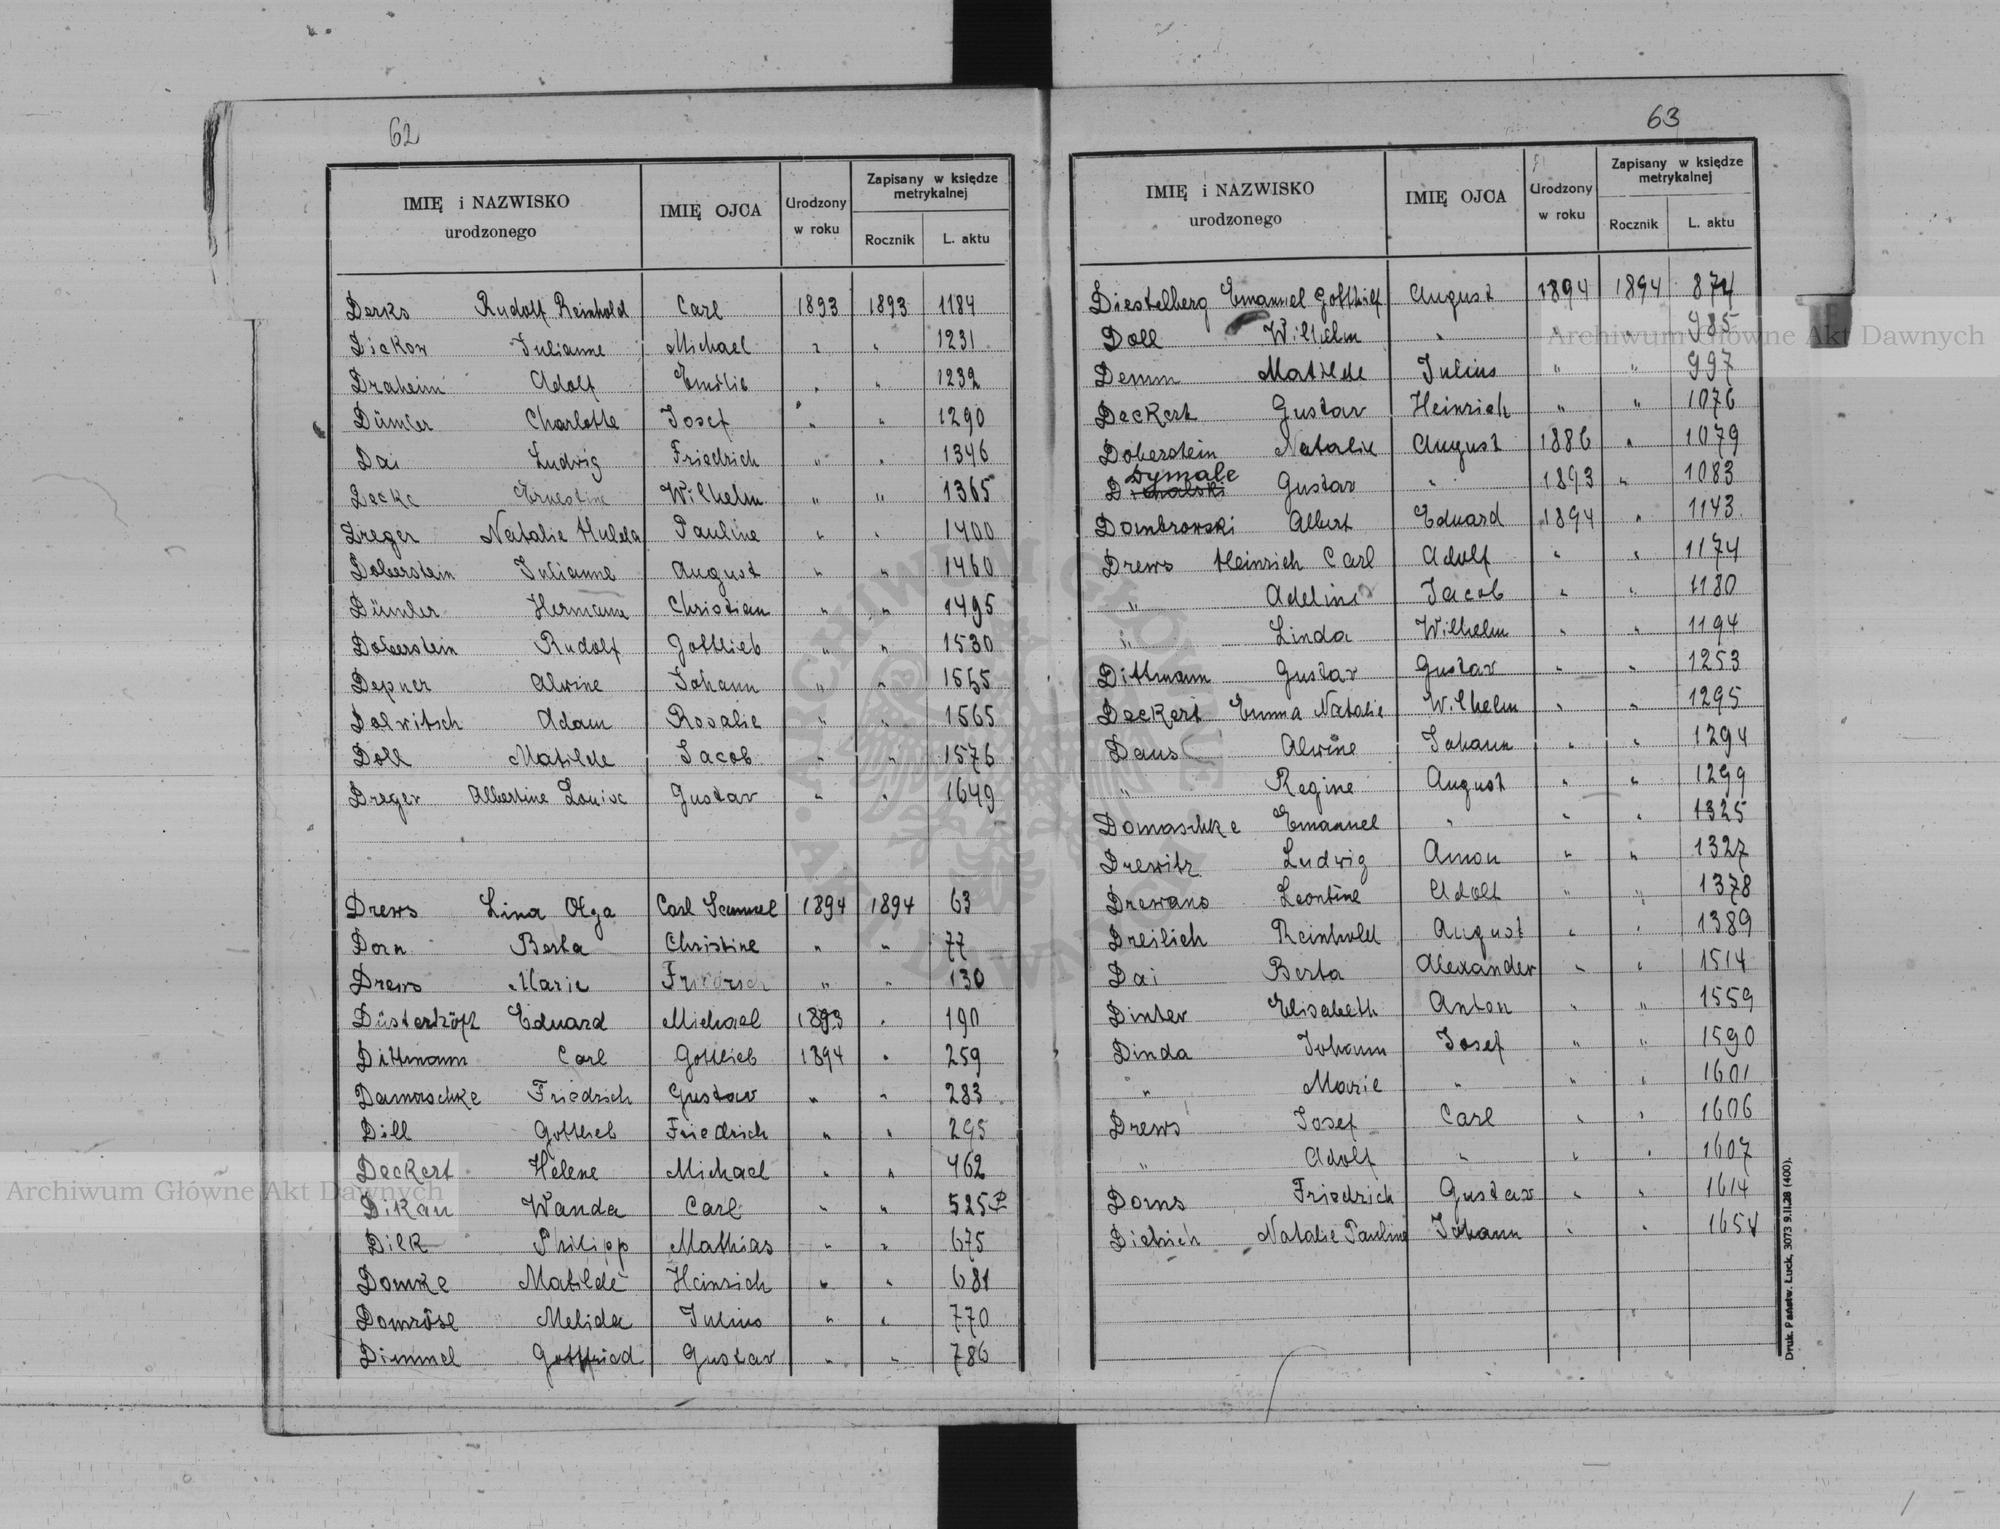 62
IMIĘ i NAZWISKO urodzonego IMIĘ OJCA Urodzony w roku Zapisany w księdze metrykalnej Rocznik L. aktu
Derks Rudolf Reinhold Carl 1893 1893 1184
Dickow Julianne Michael " " 1231
Draheim Adolf Emilie " " 1232
Dümler Charlotte Josef " " 1290
Dai Ludwig Friedrich " " 1346
Decke Ernestine Wilhelm " " 1365
Dreger Natalie Hulda Pauline " " 1400
Doberstein Julianne August " " 1460
Dümler Hermann Christian " " 1495
Doberstein Rudolf Gottlieb " " 1530
Depner Alwine Johann " " 1555
Dolwitsch Adam Rosalie " " 1565
Doll Matilde Jacob " " 1576
Dreger Albertine Louise Gustav " " 1649
Drews Lina Olga Carl Samuel 1894 1894 63
Dorn Berta Christine " " 77
Drews Marie Friedrich " " 130
Düsterhöft Eduard Michael 1893 " 190
Dittmann Carl Gottlieb 1894 " 259
Damaschke Friedrich Gustav " " 283
Dill Gottlieb Friedrich " " 295
Deckert Helene Michael " " 462
Dikau Wanda Carl " " 525
Dilk Philipp Mathias " " 675
Domke Matilde Heinrich " " 681
Domröse Melida Julius " " 770
Dimmel Gottfried Gustav " " 786
63
IMIĘ i NAZWISKO urodzonego IMIĘ OJCA Urodzony w roku Zapisany w księdze metrykalnej Rocznik L. aktu
Diestelberg Emanuel Gotthilf August 1894 1894 874
Doll Wilhelm " " " 985
Demm Matilde Julius " " 997
Deckert Gustav Heinrich " " 1076
Doberstein Natalie August 1886 " 1079
Dymale
Gustav " 1893 " 1083
Dombrowski Albert Eduard 1894 " 1143
Drews Heinrich Carl Adolf " " 1174
" Adeline Jacob " " 1180
" Linda Wilhelm " " 1194
Dittmann Gustav Gustav " " 1253
Deckert Emma Natalie Wilhelm " " 1295
Daus Alwine Johann " " 1294
" Regine August " " 1299
Domaschke Emanuel " " " 1325
Drewitz Ludwig Amon " " 1327
Drewans Leontine Adolf " " 1378
Dreilich Reinhold August " " 1389
Dai Berta Alexander " " 1514
Dinter Elisabeth Anton " " 1559
Dinda Johann Josef " " 1590
" Marie " " " 1601
Drews Josef Carl " " 1606
" Adolf " " " 1607
Dorns Friedrich Gustav " " 1614
Dietrich Natalie Pauline Johann " " 1654
Druk. Państw. Łuck, 3073 9.II.28 (400).
Archiwum Główne Akt Dawnych
Archiwum Główne Akt Dawnych
ARCHIWUM GŁÓWNE AKT DAWNYCH